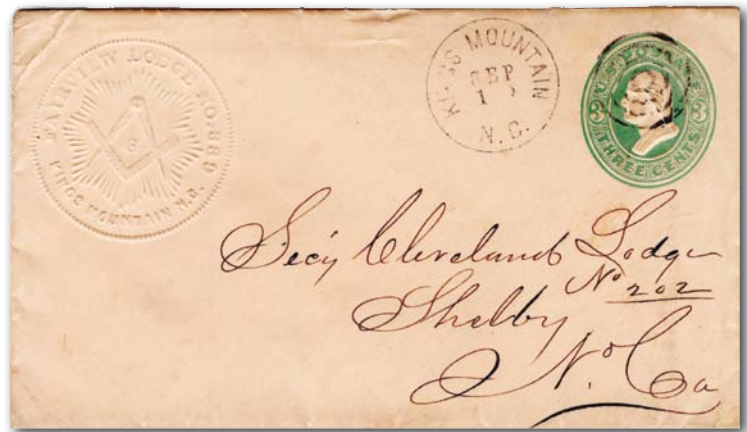 FAIRVIEW LODGE NO. 339
G
KINGS MOUNTAIN N.C.
KINGS MOUNTAIN
SEP
N.C.
U.S. POSTAGE
3 3
THREE CENTS
Sec'y Cleveland Lodge
No 202
Shelby
No Ca